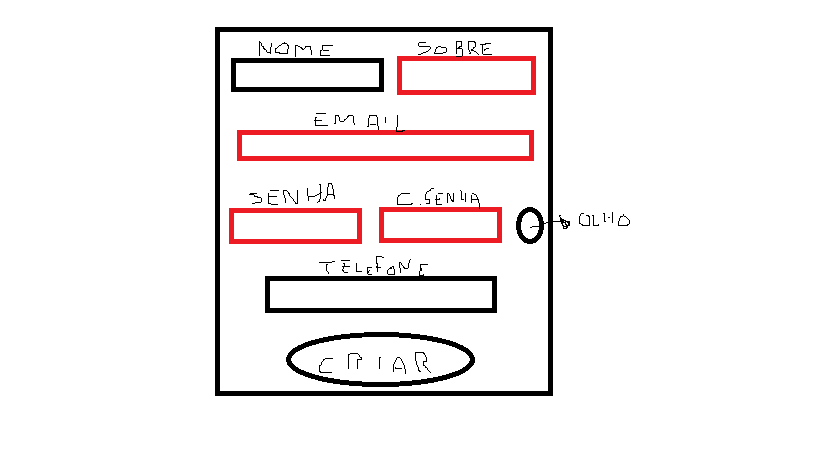 NOME SOBRE
EMAIL
SENHA C.SENHA
OLHO
TELEFONE
CRIAR